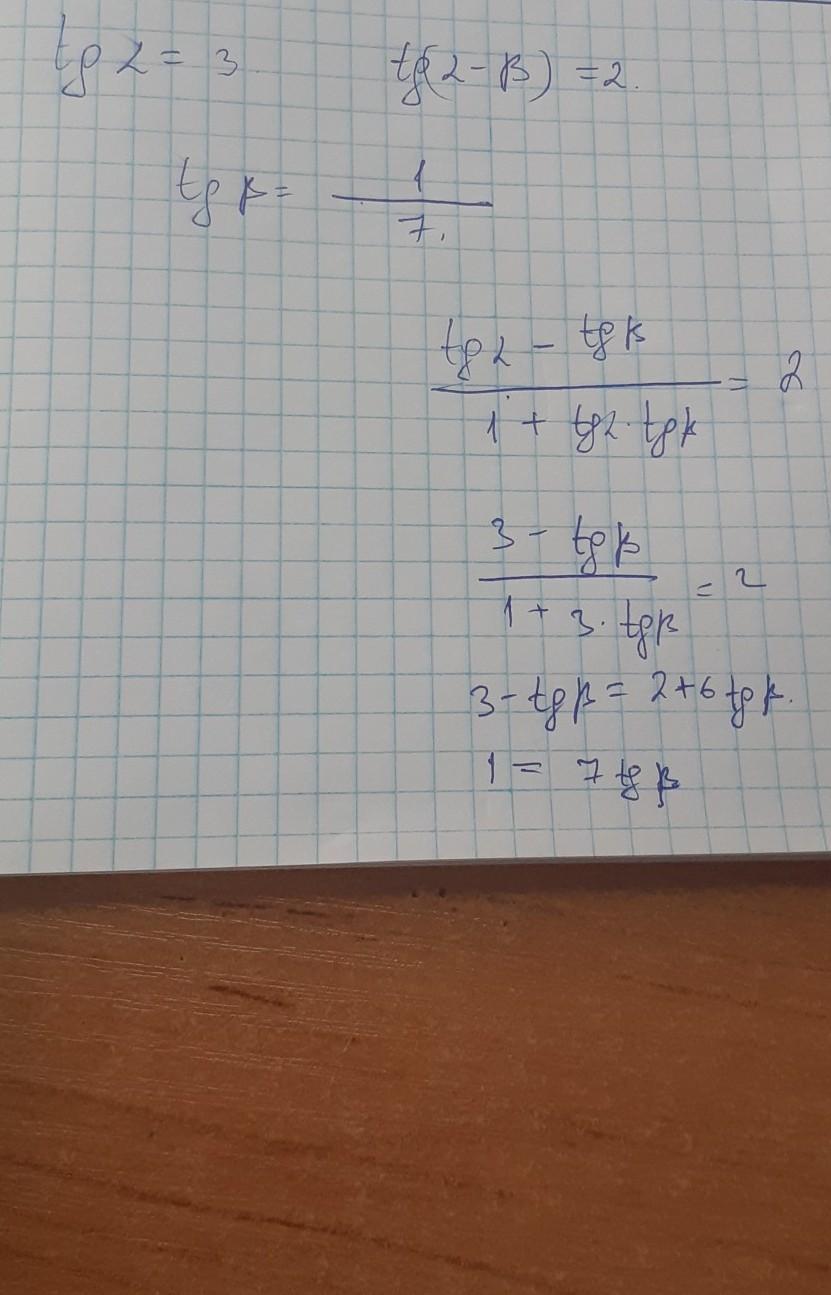 tg α = 3 tg(α - β) = 2.
tg β = 1/7.
(tg α - tg β)/(1 + tg α · tg β) = 2
(3 - tg β)/(1 + 3 · tg β) = 2
3 - tg β = 2 + 6 tg β.
1 = 7 tg β